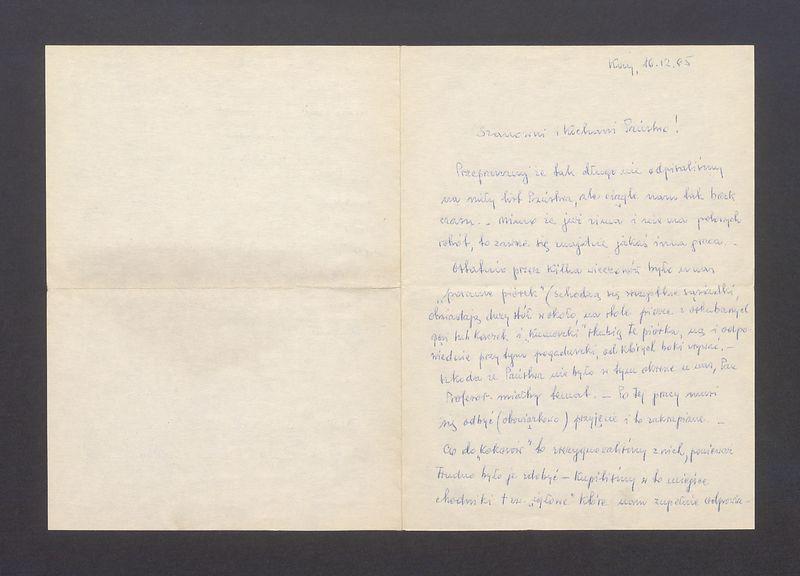 Kozy, 16.12.65
Szanowni i Kochani Państwo!
Przepraszamy że tak długo nie odpisaliśmy
na miły list Państwa, ale ciągle nam tak brak
czasu. – Mimo że jest zima i nie ma polowych
robót, to zawsze się znajdzie jakaś inna praca. –
Ostatnio przez kilka wieczorów było u nas
„ piórek" (schodzą się wszystkie sąsiadki,
obsiadają duży stół w około, na stole pierze z oskubanych
gęsi lub kaczek i „kumoszki" skubią te piórka, są i odpo-
wiednie przy tym pogaduszki, od których boki zrywać. –
Szkoda że Państwa nie było w tym okresie u nas, Pan
Profesor miałby temat. – Po tej pracy musi
się odbyć (obowiązkowo) przyjęcie i to zakrapiane. –
Co do „kokosów" to zrezygnowaliśmy z nich, ponieważ
trudno było je zdobyć – Kupiliśmy w to miejsce
chodniki t.zw. które nam zupełnie odpowia-